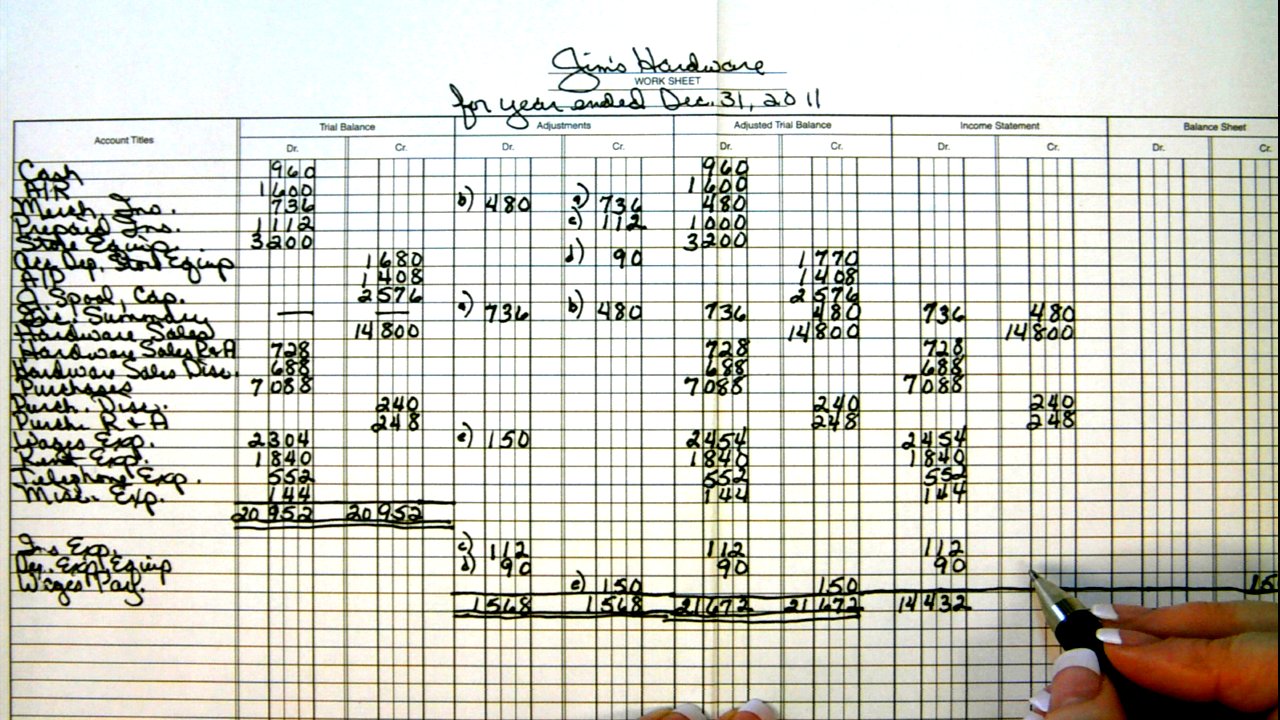 Jim's Hardware
WORK SHEET
for year ended Dec. 31, 2011
Account Titles Trial Balance Adjustments Adjusted Trial Balance Income Statement Balance Sheet
Dr. Cr. Dr. Cr. Dr. Cr. Dr. Cr. Dr. Cr.
Cash 960 960
A/R 1600 1600
Merch. Inv. 736 b) 480 a) 736 480
Prepaid Ins. 1112 c) 112 1000
Store Equip. 3200 3200
Acc. Dep. Store Equip 1680 d) 90 1770
A/P 1408 1408
J. Spool, Cap. 2576 2576
Inc. Summary — — a) 736 b) 480 736 480 736 480
Hardware Sales 14800 14800 14800
Hardware Sales R+A 728 728 728
Hardware Sales Disc. 688 688 688
Purchases 7088 7088 7088
Purch. Disc. 240 240 240
Purch. R+A 248 248 248
Wages Exp. 2304 e) 150 2454 2454
Rent Exp. 1840 1840 1840
Telephone Exp. 552 552 552
Misc. Exp. 144 144 144
20952 20952
Ins Exp. c) 112 112 112
Dep. Exp. Equip d) 90 90 90
Wages Pay. e) 150 150 15
1568 1568 21672 21672 14432